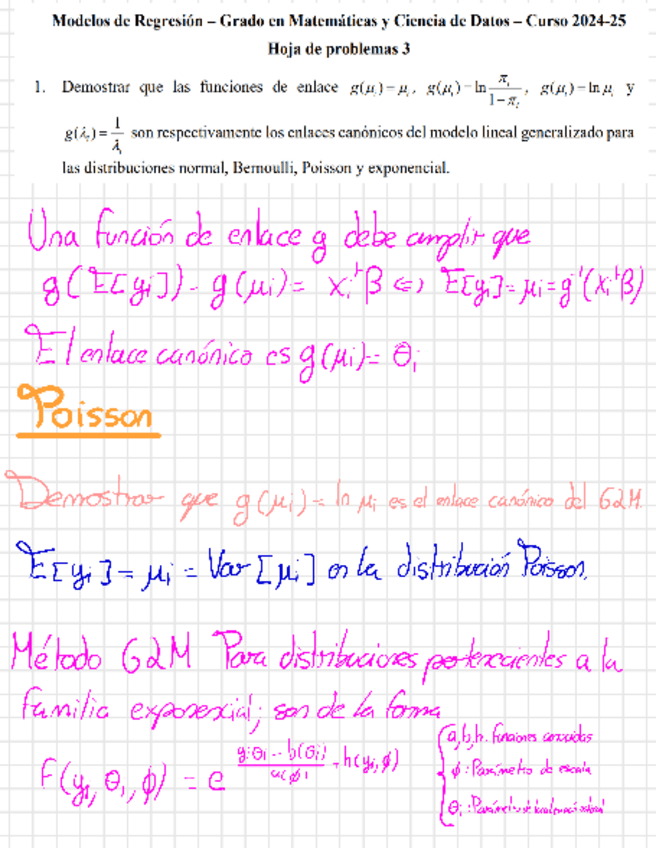 Modelos de Regresión – Grado en Matemáticas y Ciencia de Datos – Curso 2024-25
Hoja de problemas 3
1. Demostrar que las funciones de enlace g(μᵢ) = μᵢ, g(μᵢ) = ln πᵢ/(1 − πᵢ), g(μᵢ) = ln μᵢ y
g(λᵢ) = 1/λᵢ son respectivamente los enlaces canónicos del modelo lineal generalizado para
las distribuciones normal, Bernoulli, Poisson y exponencial.
Una función de enlace g debe cumplir que
g(E[yᵢ]) = g(μᵢ) = xᵢᵗβ ⇔ E[yᵢ] = μᵢ = g⁻¹(xᵢᵗβ)
El enlace canónico es g(μᵢ) = θᵢ
Poisson
Demostrar que g(μᵢ) = ln μᵢ es el enlace canónico del GLM.
E[yᵢ] = μᵢ = Var[μᵢ] en la distribución Poisson.
Método GLM Para distribuciones pertenecientes a la
familia exponencial; son de la forma
f(yᵢ, θᵢ, ϕ) = e^((yᵢθᵢ − b(θᵢ))/a(ϕ) + h(yᵢ, ϕ))
a, b, h: funciones conocidas
ϕ: Parámetro de escala
θᵢ: Parámetro de